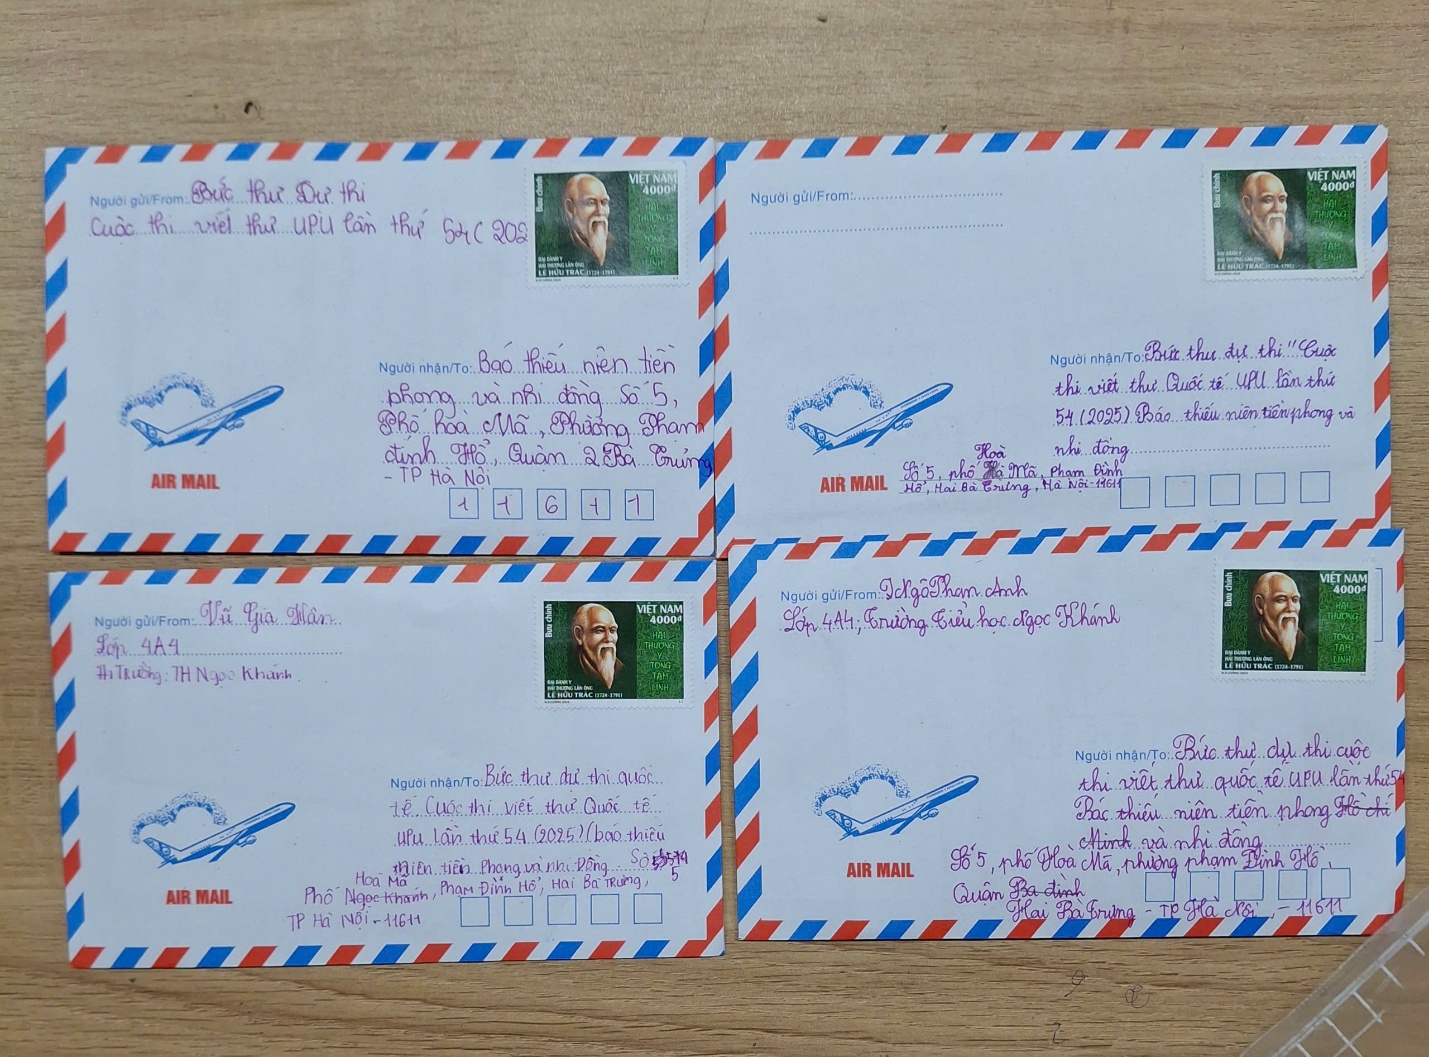 Người gửi/From: Bức thư Dự thi
Cuộc thi viết thư UPU lần thứ 54 ( 202
Bưu chính
VIỆT NAM
4000đ
HẢI
THƯỢNG
Y
TÔNG
TÂM
LĨNH
ĐẠI DANH Y
HẢI THƯỢNG LÃN ÔNG
LÊ HỮU TRÁC (1724-1791)
Người nhận/To: Báo thiếu niên tiền
phong và nhi đồng Số 5,
Phố hoà Mã, Phường Phạm
đình Hổ, Quận 2 Bà Trưng
- TP Hà Nội
AIR MAIL
1 1 6 1 1
Người gửi/From:
Bưu chính
VIỆT NAM
4000đ
HẢI
THƯỢNG
Y
TÔNG
TÂM
LĨNH
ĐẠI DANH Y
HẢI THƯỢNG LÃN ÔNG
LÊ HỮU TRÁC (1724-1791)
Người nhận/To: Bức thư dự thi "Cuộc
thi viết thư Quốc tế UPU lần thứ
54 (2025) Báo thiếu niên tiền phong và
nhi đồng
Hoà
Số 5, phố Hà Mã, Phạm Đình
Hổ, Hai Bà Trưng, Hà Nội-11611
AIR MAIL
Người gửi/From: Vũ Gia Hân
Lớp 4A4
Trường: TH Ngọc Khánh.
Bưu chính
VIỆT NAM
4000đ
HẢI
THƯỢNG
Y
TÔNG
TÂM
LĨNH
ĐẠI DANH Y
HẢI THƯỢNG LÃN ÔNG
LÊ HỮU TRÁC (1724-1791)
Người nhận/To: Bức thư dự thi quốc
tế Cuộc thi viết thư Quốc tế
UPU lần thứ 54 (2025) (báo thiếu
niên tiền Phong và nhi Đồng Số
5
Hoà Mã
Phố Ngọc Khánh, Phạm Đình Hổ, Hai Bà Trưng,
TP Hà Nội - 11611
AIR MAIL
Người gửi/From: Ngô Phan Anh
Lớp 4A4; Trường Tiểu học Ngọc Khánh
Bưu chính
VIỆT NAM
4000đ
HẢI
THƯỢNG
Y
TÔNG
TÂM
LĨNH
ĐẠI DANH Y
HẢI THƯỢNG LÃN ÔNG
LÊ HỮU TRÁC (1724-1791)
Người nhận/To: Bức thư dự thi cuộc
thi viết thư quốc tế UPU lần thứ 54
Bác thiếu niên tiền phong Hồ chí
Minh và nhi đồng
Số 5, phố Hoà Mã, phường phạm Đình Hổ,
Quận Ba đình
Hai Bà Trưng - TP Hà Nội, - 11611
AIR MAIL